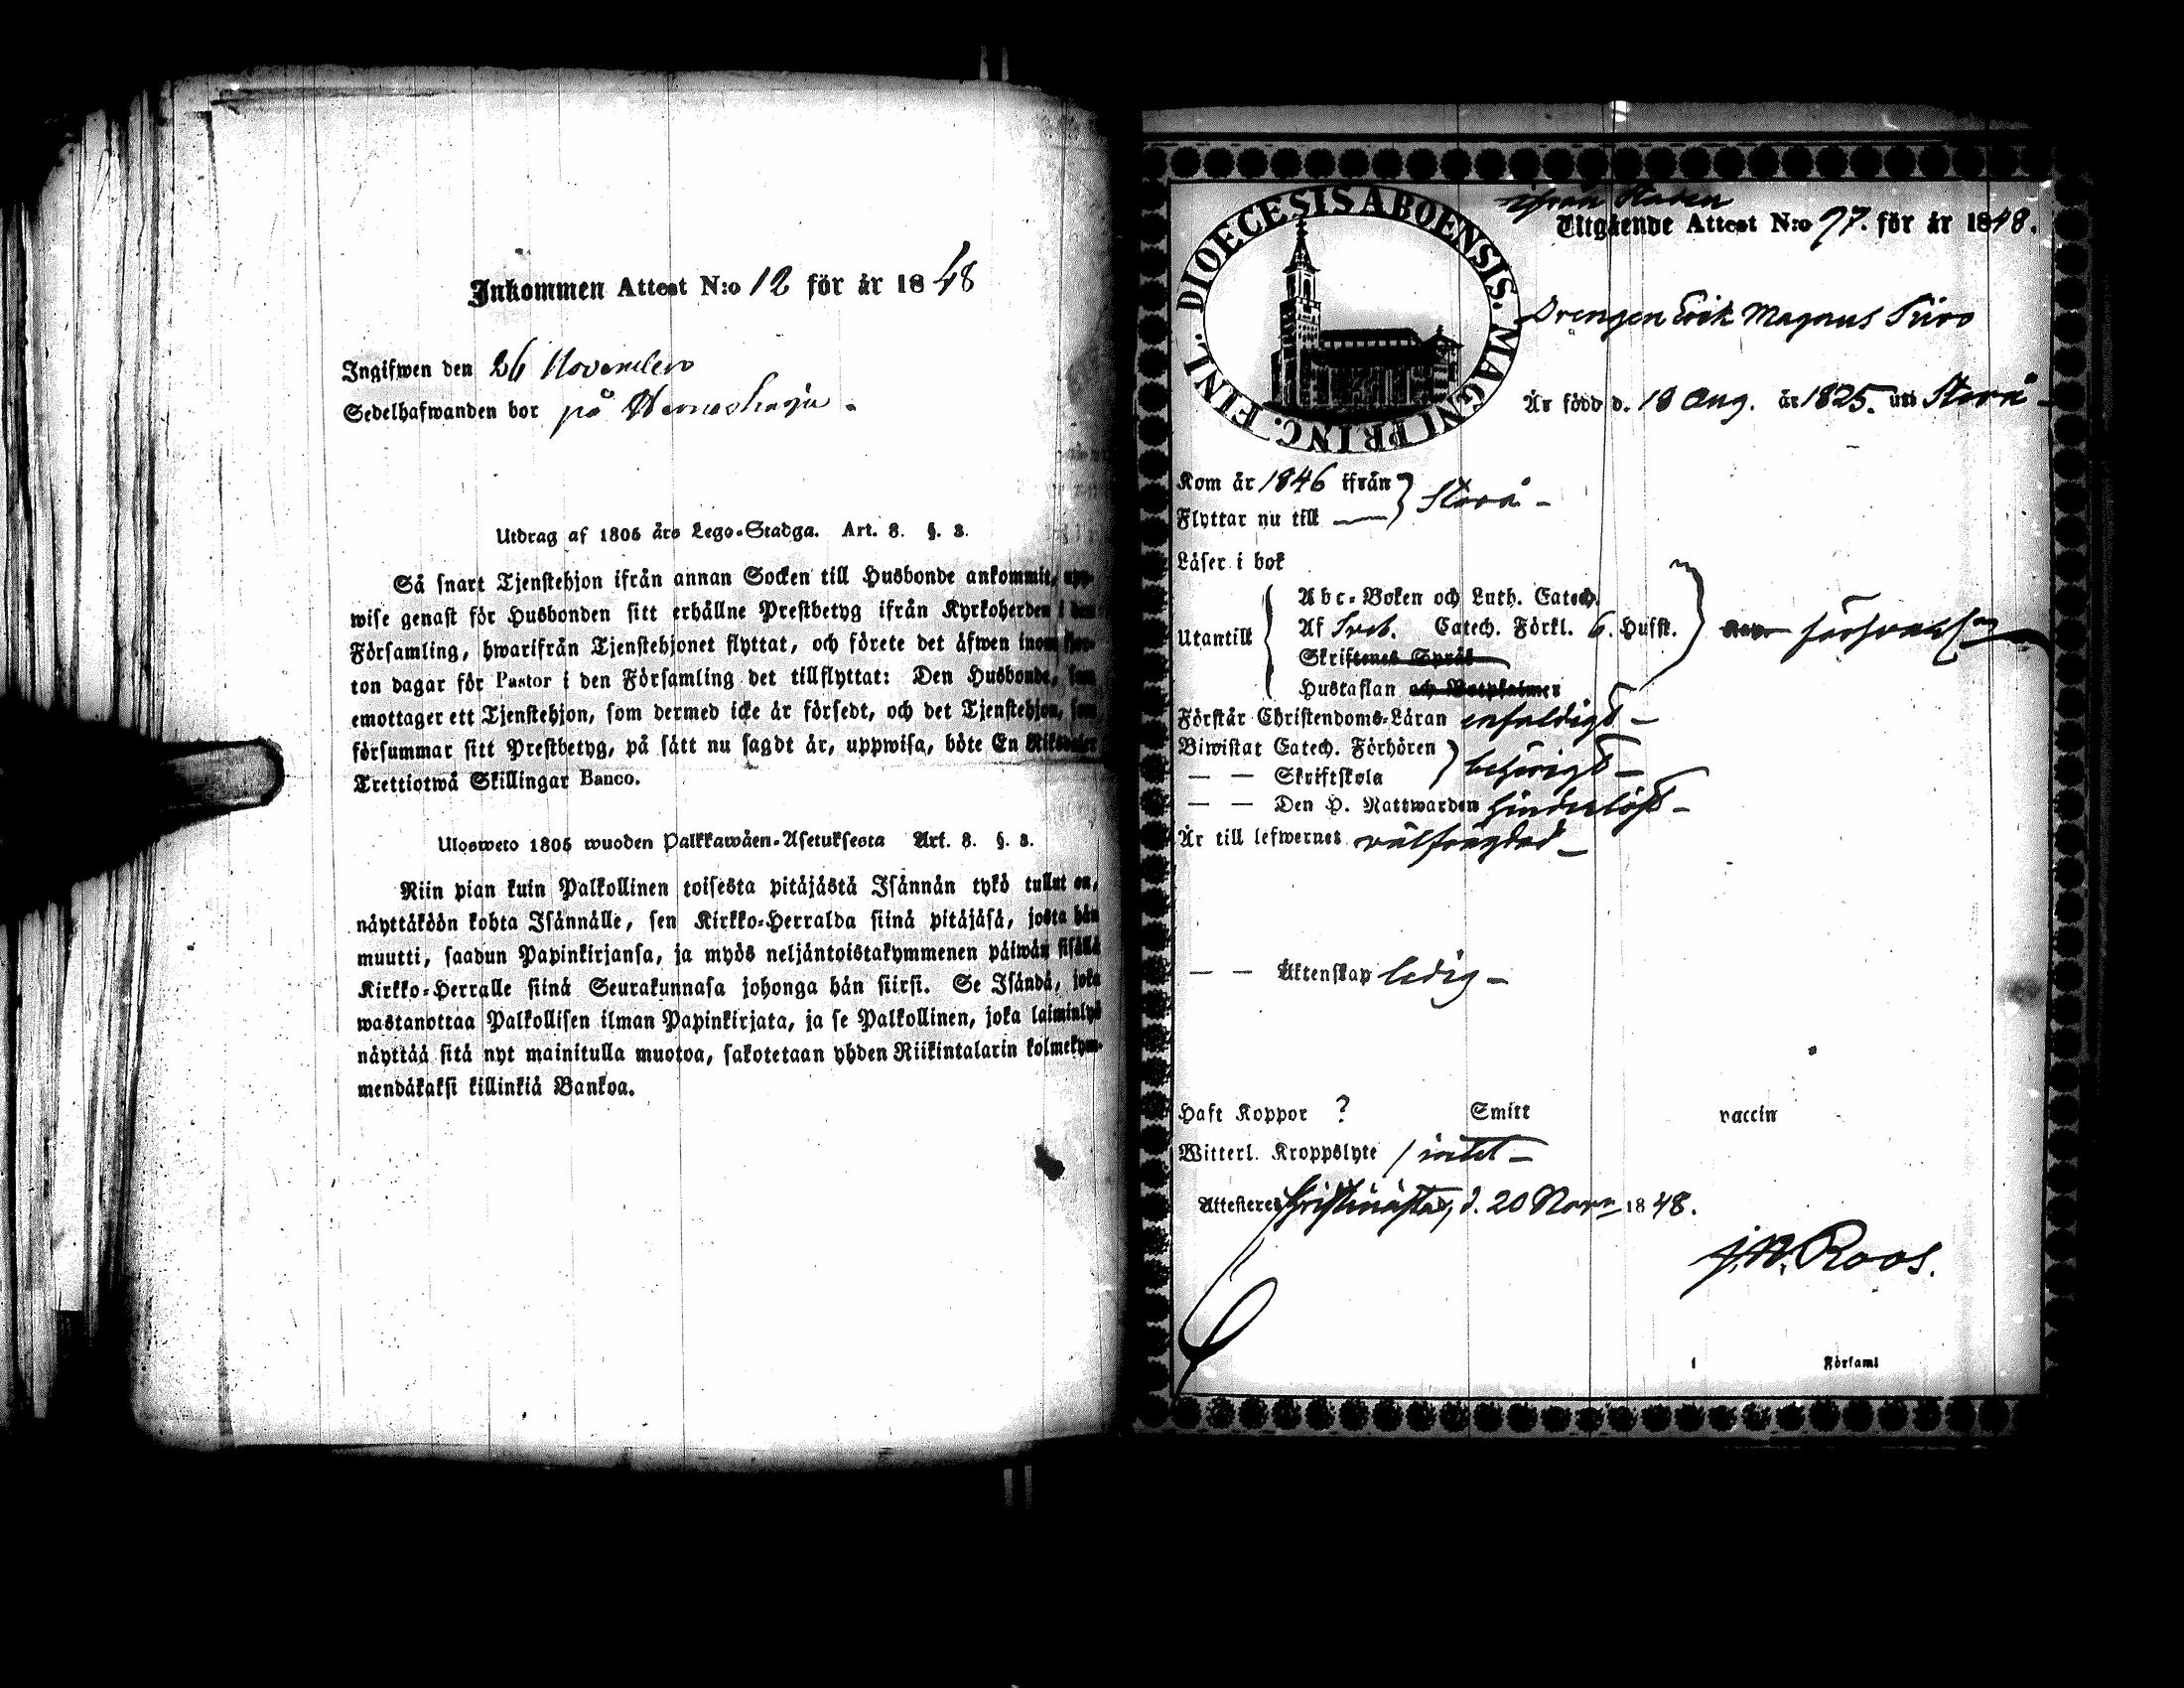 Inkommen Attest N:o 12 för år 1848
Ingifwen den 26 November
Sedelhafwanden bor på
Utdrag af 1805 års Lego-Stadga. Art. 8. §. 3.
Så snart Tjenstehjon ifrån annan Socken till Husbonde ankommit, upp-
wise genast för Husbonden sitt erhållne Prestbetyg ifrån Kyrkoherden i den
Församling, hwarifrån Tjenstehjonet flyttat, och förete det äfwen inom fjor-
ton dagar för Pastor i den Församling det tillflyttat: Den Husbonde, som
emottager ett Tjenstehjon, som dermed icke är försedt, och det Tjenstehjon, som
försummar sitt Prestbetyg, på sätt nu sagdt är, uppwisa, böte En Riksdaler
Trettiotwå Skillingar Banco.
Ulosweto 1805 wuoden Palkkawäen-Asetuksesta Art. 8. §. 3.
Niin pian kuin Palkollinen toisesta pitäjästä Isännän tykö tullut on,
näyttäköön kohta Isännälle, sen Kirkko-Herralda siinä pitäjäsä, josta hän
muutti, saadun Papinkirjansa, ja myös neljäntoistakymmenen päiwän sisällä
Kirkko-Herralle siinä Seurakunnasa johonga hän siirsi. Se Isändä, joka
wastanottaa Palkollisen ilman Papinkirjata, ja se Palkollinen, joka laiminlyö
näyttää sitä nyt mainitulla muotoa, sakotetaan yhden Riikintalarin kolmekym-
mendäkaksi killinkiä Bankoa.
DIOECESIS ABOENSIS. MAGNI PRINC. FINL.
ifrån Staden
Utgående Attest N:o 97. för år 1848.
Drengen Erik Magnus
Är född d. 18 Aug. år 1825. uti Storå
Kom år 1846 ifrån } Storå
Flyttar nu till
Läser i bok
Utantill
Abc-Boken och Luth. Catech.
Af Sveb. Catech. Förkl. 6. Hufst.
Skriftenes Språk
Hustaflan och Botpsalmer
Förstår Christendoms-Läran enfaldigt
Biwistat Catech. Förhören } behörigt
— — Skriftskola
— — Den H. Nattwarden hinderlöst
Är till lefwernet välfrägdad
— — Äktenskap ledig
Haft Koppor ? Smitt vaccin
Witterl. Kroppslyte / intet
Attesteres Christinestad, d. 20 Nov. 1848.
J. N. Roos.
i Församl